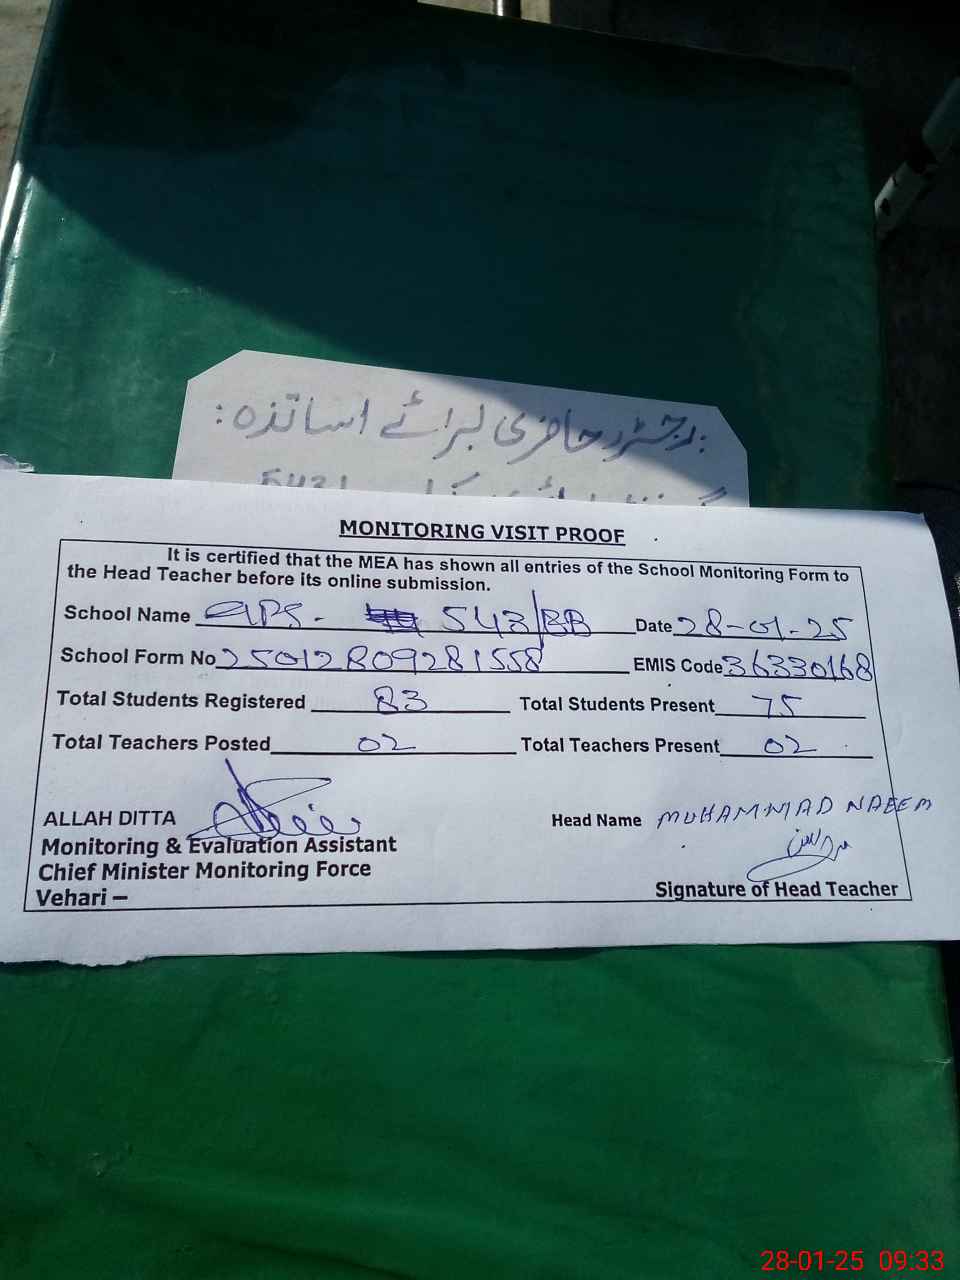 رجسٹر حاضری برائے اساتذہ:
MONITORING VISIT PROOF
It is certified that the MEA has shown all entries of the School Monitoring Form to
the Head Teacher before its online submission.
School Name GPS- 543/BB Date 28-01-25
School Form No 25012809281558 EMIS Code 36330168
Total Students Registered 83 Total Students Present 75
Total Teachers Posted 02 Total Teachers Present 02
ALLAH DITTA Head Name MUHAMMAD NAEEM
Monitoring & Evaluation Assistant
Chief Minister Monitoring Force
Vehari – Signature of Head Teacher
28-01-25 09:33